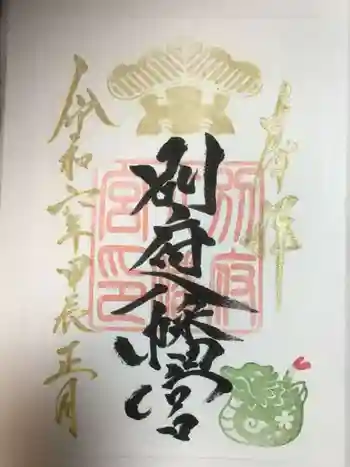 奉拝
別府八幡宮
別府八幡宮印
令和六年甲辰正月